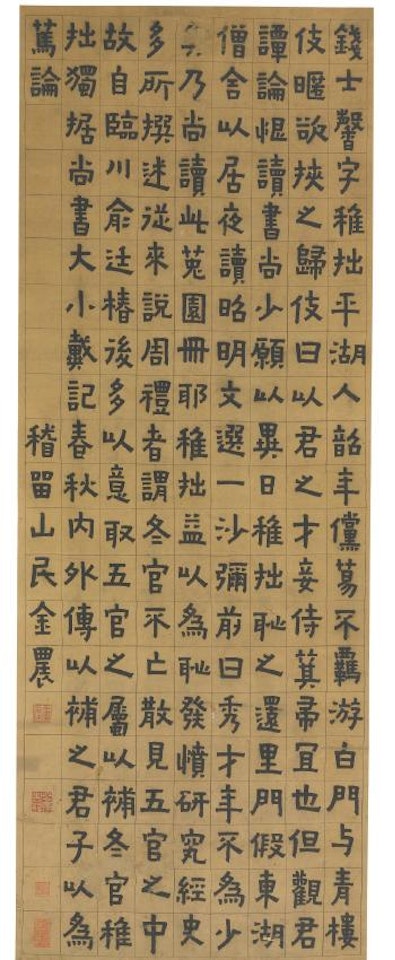 錢士馨字稚拙平湖人韶年儻蕩不羈游白門与青樓
伎暱欲挾之歸伎曰以君之才妾侍箕帚宜也但觀君
譚論恨讀書尚少願以異日稚拙耻之還里門假東湖
僧舍以居夜讀昭明文選一沙彌前曰秀才年不為少
矣乃尚讀此菟園冊耶稚拙益以為耻發憤研究經史
多所撰述從來說周禮者謂冬官不亡散見五官之中
故自臨川俞廷椿後多以意取五官之屬以補冬官稚
拙獨据尚書大小戴記春秋內外傳以補之君子以為
篤論 稽留山民金農